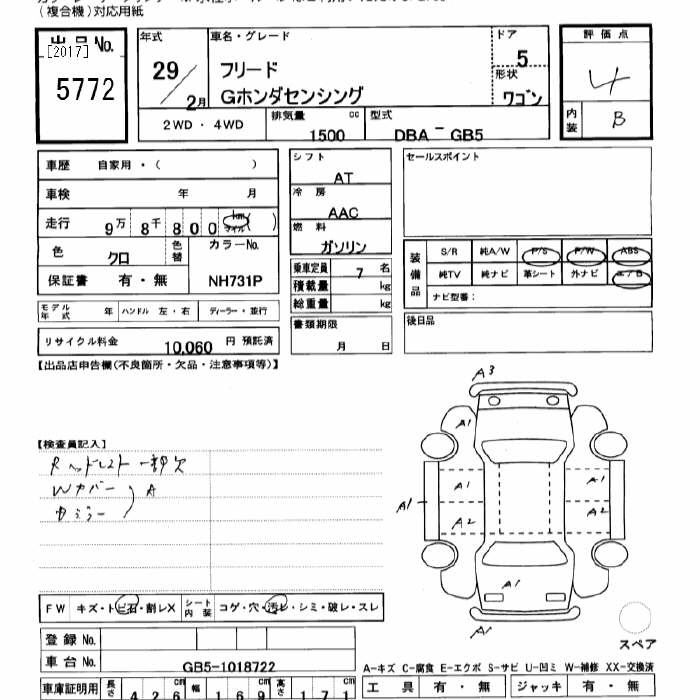 (複合機)対応用紙
出品No.
[2017]
5772
年式
29/2月
車名・グレード
フリード
Gホンダセンシング
ドア
5
形状
ワゴン
評価点
4
内装
B
2WD・4WD
排気量 cc
1500
型式
DBA-GB5
車歴 自家用・( )
車検 年 月
走行 9万 8千 8 0 0 km マイル( )
色 クロ
色替
カラーNo.
NH731P
保証書 有・無
モデル年式 年 ハンドル 左・右 ディーラー・並行
リサイクル料金 10,060 円 預託済
シフト
AT
冷房
AAC
燃料
ガソリン
乗車定員 7 名
積載量 kg
総重量 kg
書類期限
月 日
セールスポイント
装備品
S/R 純A/W P/S P/W ABS
純TV 純ナビ 革シート 外ナビ エ/B
ナビ型番:
後日品
【出品店申告欄(不良箇所・欠品・注意事項等)】
【検査員記入】
Rヘッドレスト一部欠
Wカバー
A
A3
A1
A1
A1
A1
A2
A2
A1
A1
スペア
FW キズ・トビ石・割レX シート内装 コゲ・穴・汚レ・シミ・破レ・スレ
登録No.
車台No. GB5-1018722
車庫証明用 長さ 426 cm 幅 169 cm 高さ 171 cm
A-キズ C-腐食 E-エクボ S-サビ U-凹ミ W-補修 XX-交換済
工具 有・無 ジャッキ 有・無